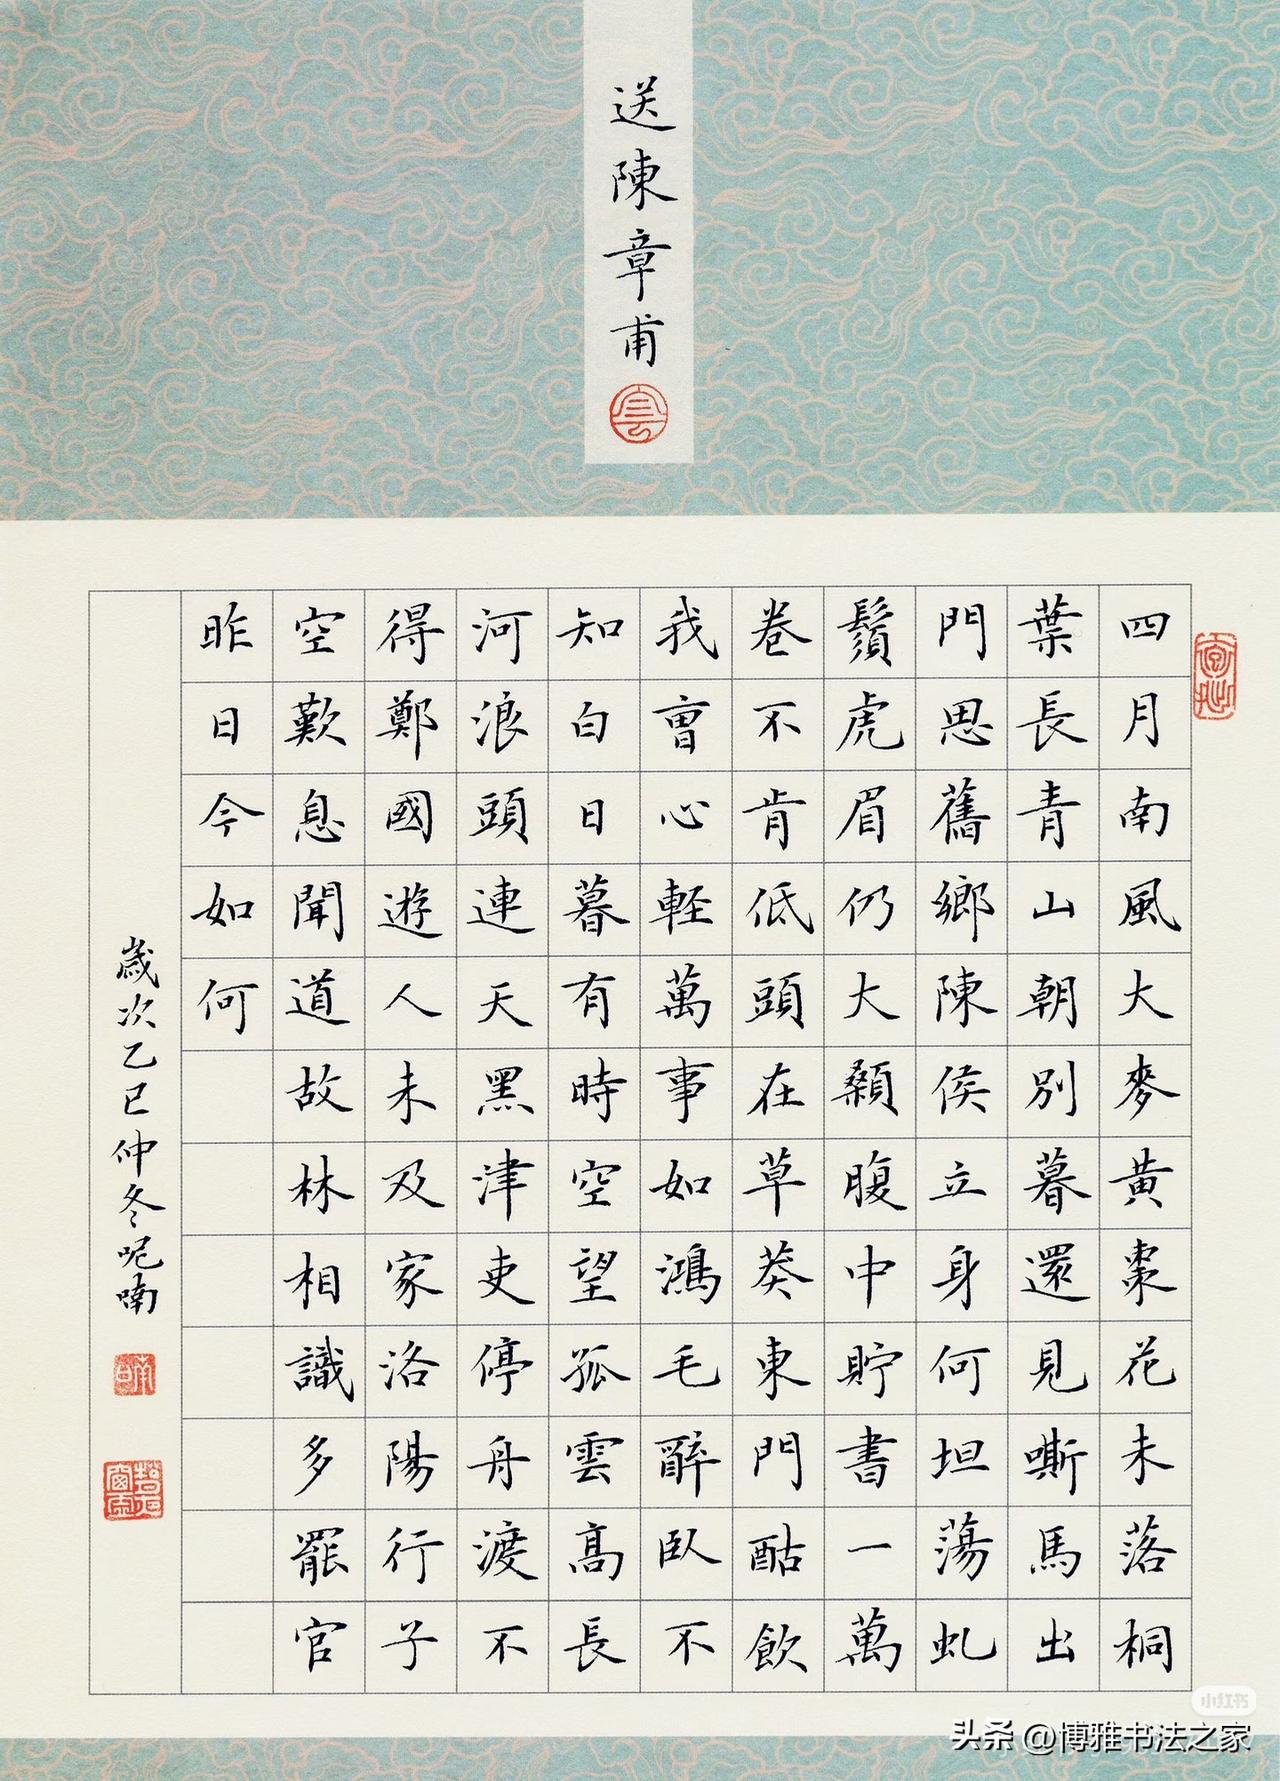 送陳章甫
四月南風大麥黄棗花未落桐
葉長青山朝別暮還見嘶馬出
門思舊鄉陳侯立身何坦蕩虬
鬚虎眉仍大顙腹中貯書一萬
卷不肯低頭在草莽東門酤飲
我曹心軽萬事如鴻毛醉臥不
知白日暮有時空望孤雲高長
河浪頭連天黑津吏停舟渡不
得鄭國遊人未及家洛陽行子
空歎息聞道故林相識多罷官
昨日今如何
歲次乙巳仲冬呢喃
小红书
头条 @博雅书法之家